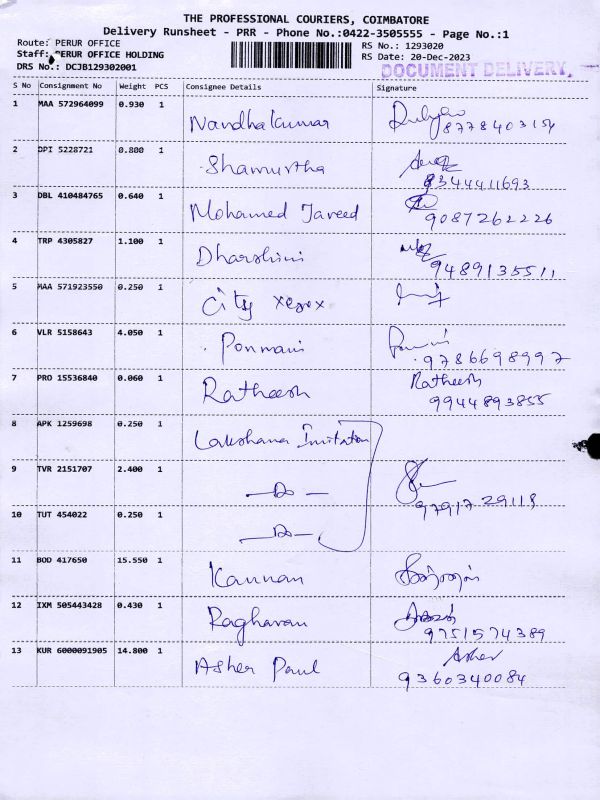 THE PROFESSIONAL COURIERS, COIMBATORE
Delivery Runsheet - PRR - Phone No.:0422-3505555 - Page No.:1
Route: PERUR OFFICE
Staff: PERUR OFFICE HOLDING
DRS No.: DCJB129302001
RS No.: 1293020
RS Date: 20-Dec-2023
DOCUMENT DELIVERY.
S No Consignment No Weight PCS Consignee Details Signature
1 MAA 572964099 0.930 1 Nandhakumar
8778403154
2 DPI 5228721 0.800 1 Shamurtha
9344411693
3 DBL 410484765 0.640 1 Mohamed Javeed
9087262226
4 TRP 4305827 1.100 1 Dharshini
9489135511
5 MAA 571923550 0.250 1 City xerox
6 VLR 5158643 4.050 1 Ponmani
9786698997
7 PRO 15536840 0.060 1 Ratheesh Ratheesh
9944893855
8 APK 1259698 0.250 1 Lakshana Invitation
9 TVR 2151707 2.400 1 — Do —
9791729118
10 TUT 454022 0.250 1 — Do —
11 BOD 417650 15.550 1 Kannan
12 IXM 505443428 0.430 1 Raghavan
9751574389
13 KUR 6000091905 14.800 1 Asher Paul Asher
9360340084